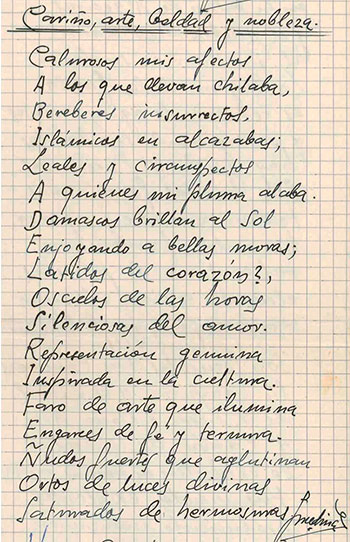 Cariño, arte, beldad y nobleza.
Calurosos mis afectos
A los que llevan chilaba,
Bereberes insurrectos,
Islámicos en alcazabas;
Leales y circunspectos
A quienes mi pluma alaba.
Damascos brillan al Sol
Enjoyando a bellas moras;
Latidos del corazón?,
Osculos de las horas
Silenciosas del amor.
Representación genuina
Inspirada en la cultura.
Faro de arte que ilumina
Engarces de fé y ternura.
Ñudos fuertes que aglutinan
Ortos de luces divinas
Saturados de hermosuras